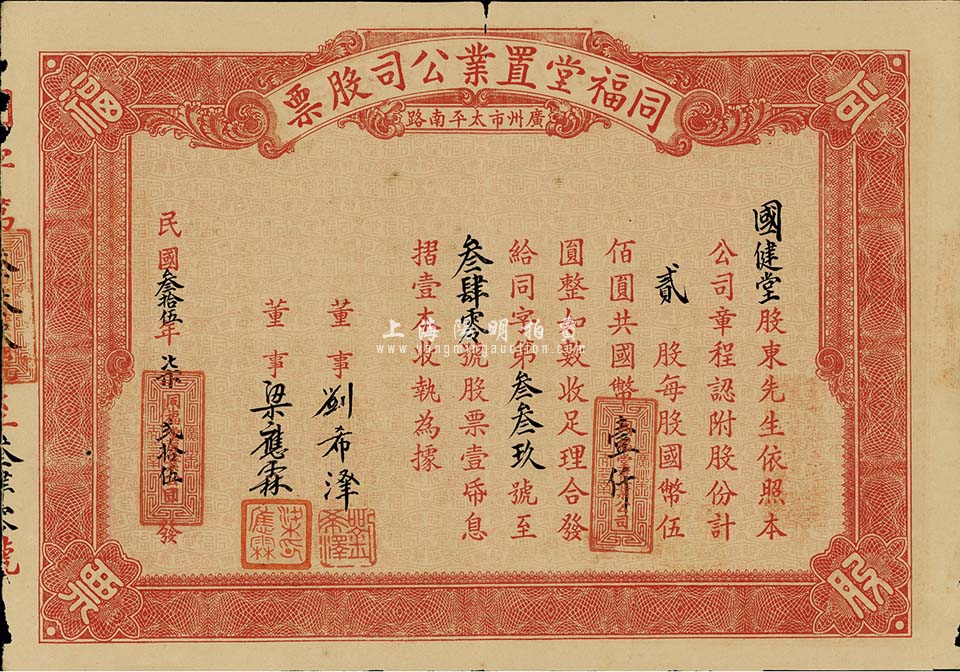 同福堂置業公司股票
廣州市太平南路
同
福
股
票
國健堂股東先生依照本
公司章程認附股份計
貳股每股國幣伍
佰圓共國幣壹仟
圓整如數收足理合發
給同字第叁叁玖號至
叁肆零號股票壹帋息
摺壹本收執為據
董事劉希澤
董事梁應霖
民國叁拾伍年柒月貳拾伍日發
上海陽明拍賣
www.yangmingauction.com